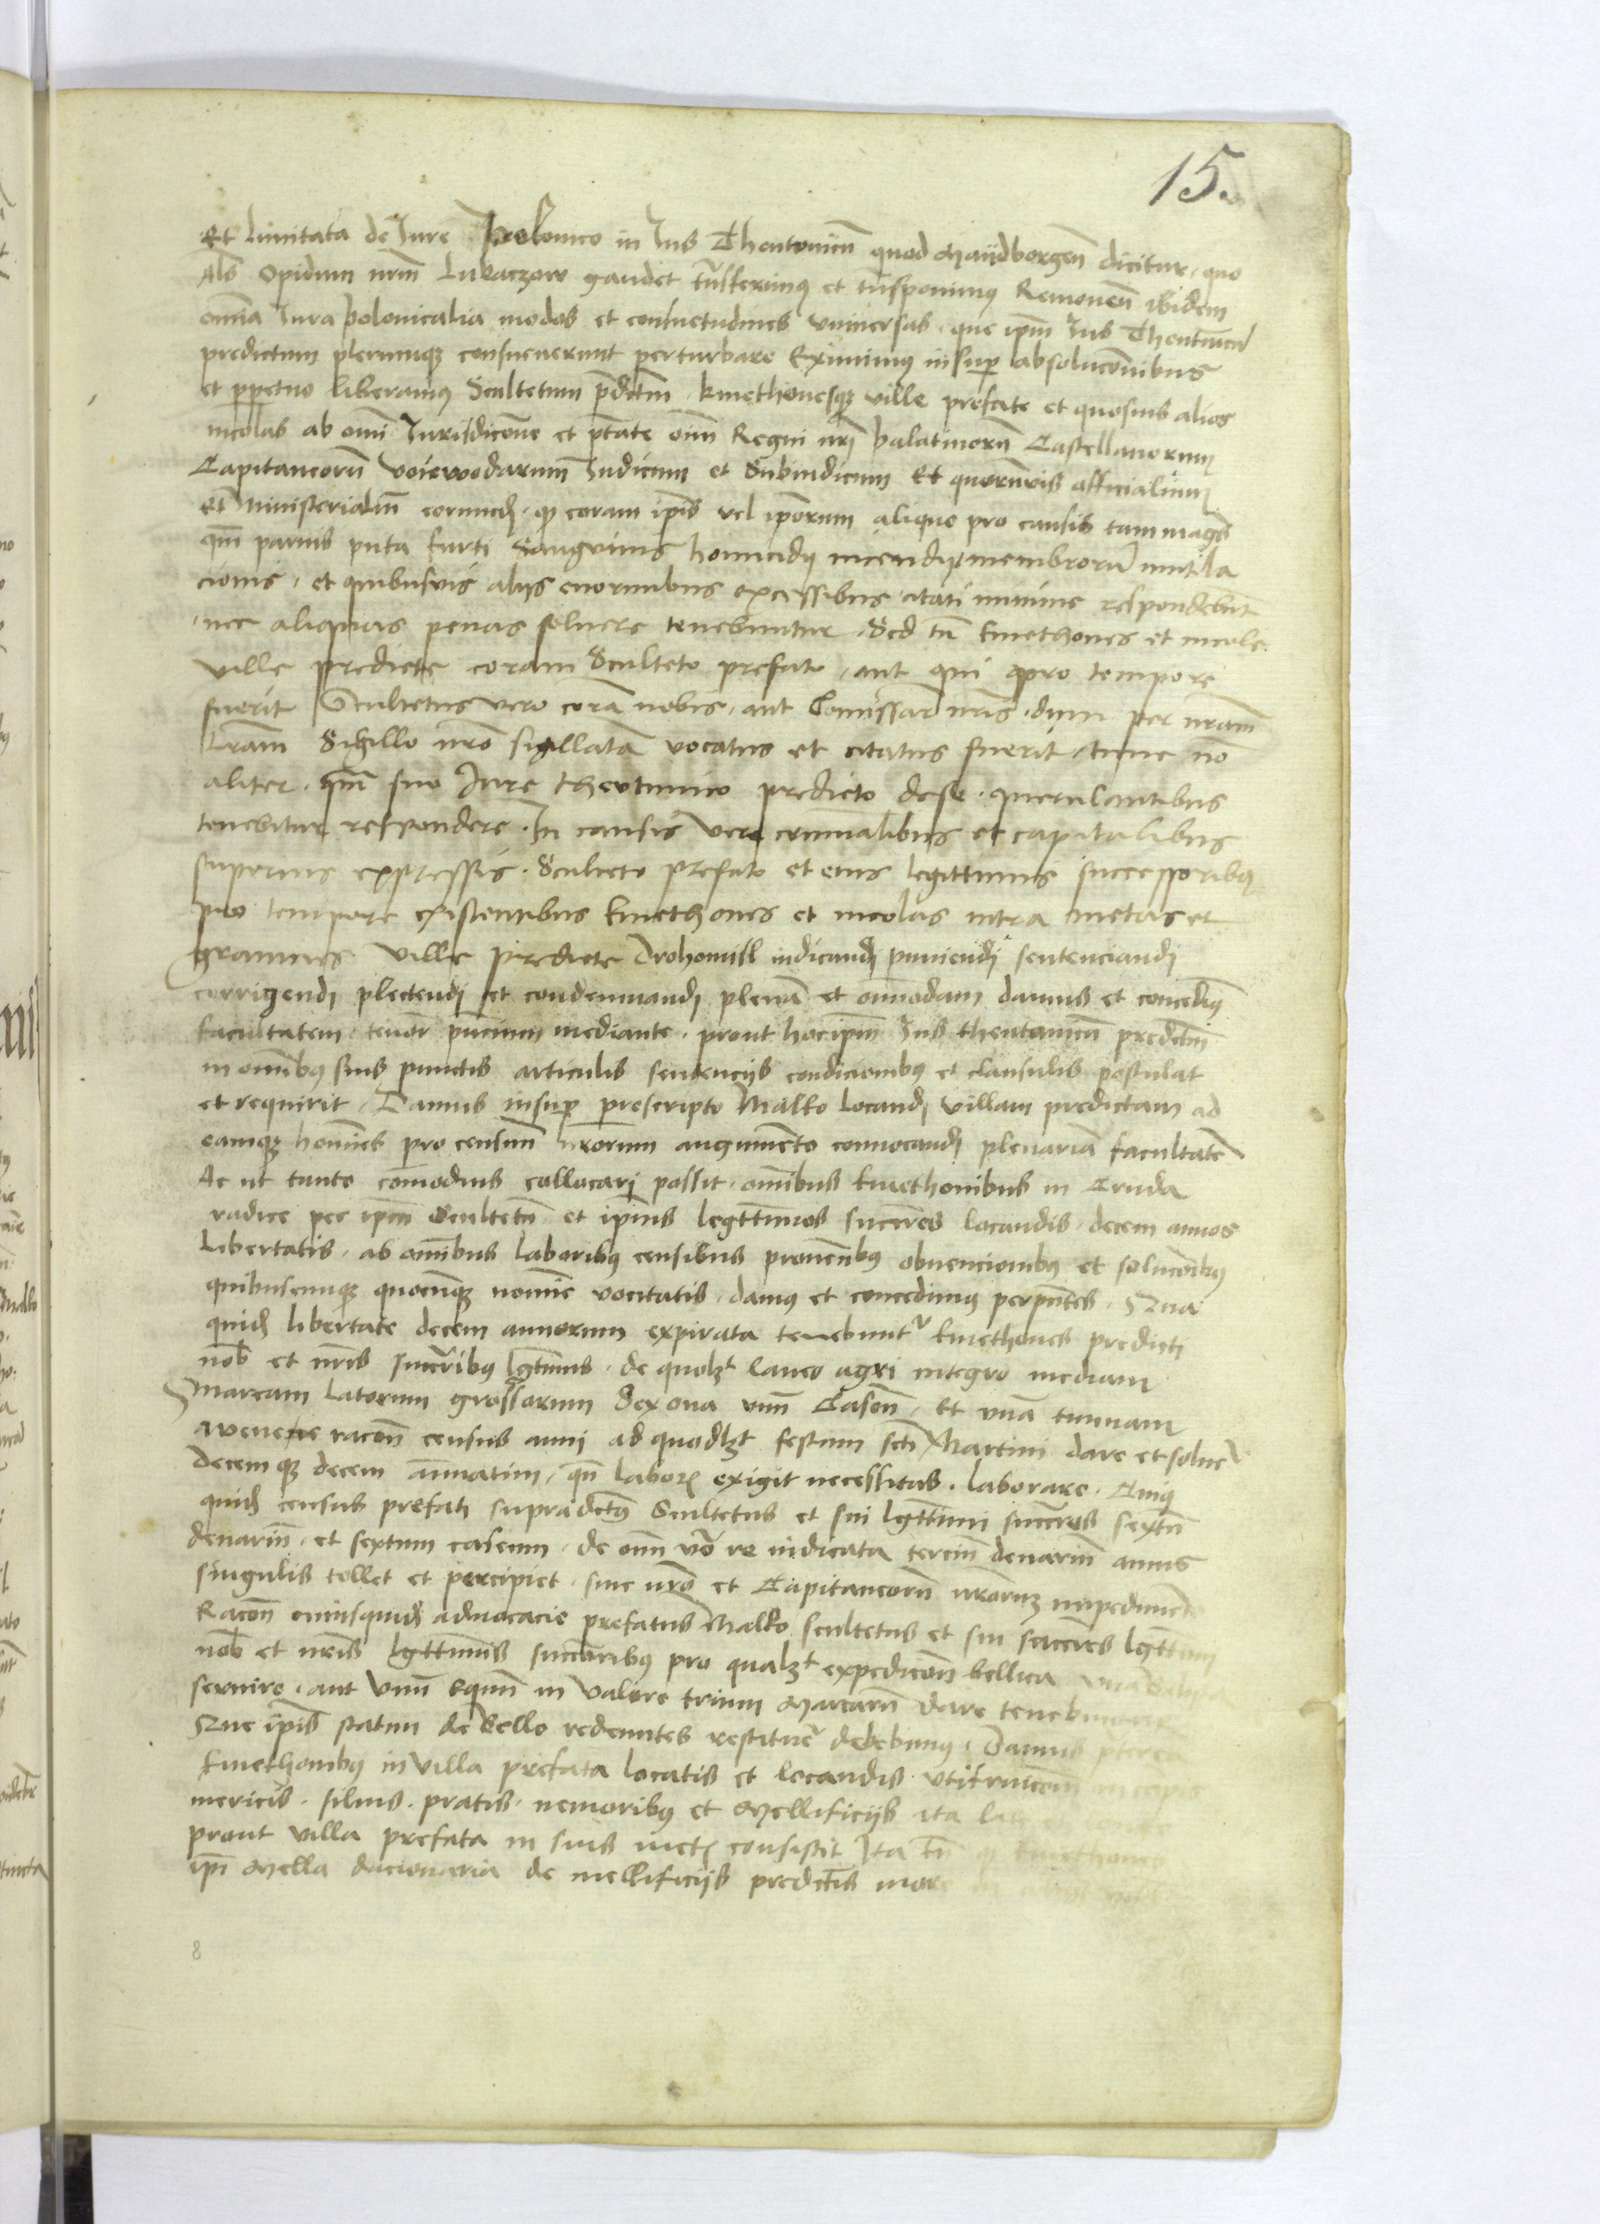 15.
Et limitata de Jure Polonico in Jus Theutonicum quod Maydborgen dicitur quo
Als Opidum nrm Lubaczow gaudet trnsferimus et trnsponimus Removen ibidem
omnia Jura polonicalia modos et consuetudines vniversas que ipm Jus Theutunicu
predictum plerumque consueuerunt perturbare Eximimus insup absoluimus
et ppetuo liberamus Scultetum pdctm kmethonesque ville prefate et quosuis alios
incolas ab omni Jurisdicione et ptate oim Regni nri palatinorum Castellanorum
Capitaneorum Woiewodarum Judicum et Subiudicum Et quorumvis officialium
et Ministerialium eorundem coram ipis vel ipsorum aliquo pro causis tam magnis
qm paruis puta furti Sanguinis homicidij incendij membroru mutila
cionis et quibusuis alijs enormibus excessibus citati minime respondebunt
nec aliquas penas soluere tenebuntur Sed tn kmethones et incole
ville predicte coram Sculteto prefato aut qui pro tempore
fuerit Scultetus vero cora nobis aut Comissar nris dum per nram
lram Sigillo nro sigillata vocatus et citatus fuerit tunc no
aliter qm suo Jure theutunico predicto de se querulantibus
tenebitur respondere In causis vero criminalibus et capitalibus
superius expressis Sculteto prefato et eius legittimis successoribus
pro tempore existentibus kmethones et incolas intra metas et
granicies ville predicte Drohomisl iudicandi puniendi sentenciandi
corrigendi plectendi et condemnandi plena et omnimodam damus et concedimus
facultatem tenor pncium mediante prout hoc ipm Jus theutonicum predctm
in omnibus suis punctis articulis sentencijs condicionibus et clausulis postulat
et requirit Damus insup prescripto Malko locandi villam predictam ad
eamque homines pro censuum nrorum augumento conuocandi plenariam facultate
Ac ut tanto comodius collocari possit omnibus kmethonibus in Cruda
radice per ipm Scultetum et ipsius legttimos succeres locandis decem annos
libertatis ab omnibus laboribus censibus prouentibus obuencionibus et solucionibus
quibuscunque quocunque nomine vocitatis damus et concedimus perpntes Qua
quidem libertate decem annorum expirata tenebuntr kmethones predicti
nob et nris succribus lgttimis de quolzt laneo agri integro mediam
Marcam latorum grossorum Sex oua vnu Caseu Et vnam tunnam
avene racone census anni ad quodlzt festum scti Martini dare et soluere
decemque decem annatim qn labor exigit necessitas laborare Cuius
quidem census prefati supradctus Scultetus et sui lgttimi succeres sextum
denarium et sextum caseum de omni vero re iudicata tercium denarium annis
singulis tollet et percipiet sine nro et Capitaneorum nrorum impedimento
Racone cuiusquidem aduocacie prefatus Malko scultetus et sui succeres lgttimi
nob et nris lgttimis succeribus pro qualzt expedicione bellica
seruire aut vnum Equum in valore trium Marcarum dare tenebuntur
Que ipis statim de bello redeuntes restituere debebimus Damus pterea
kmethonibus in villa prefata locatis et locandis vtifruicionem in
mericis siluis pratis nemoribus et Mellificijs ita
prout villa prefata in suis metis consistit Ita tn quod kmethones
ipi Mella dacionaria de mellificijs predictis more
8